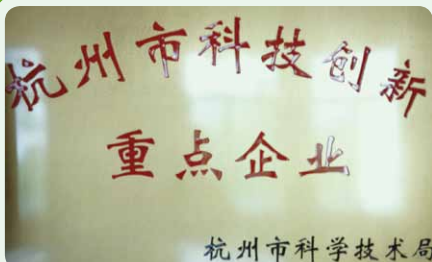 杭州市科技创新
重点企业
杭州市科学技术局